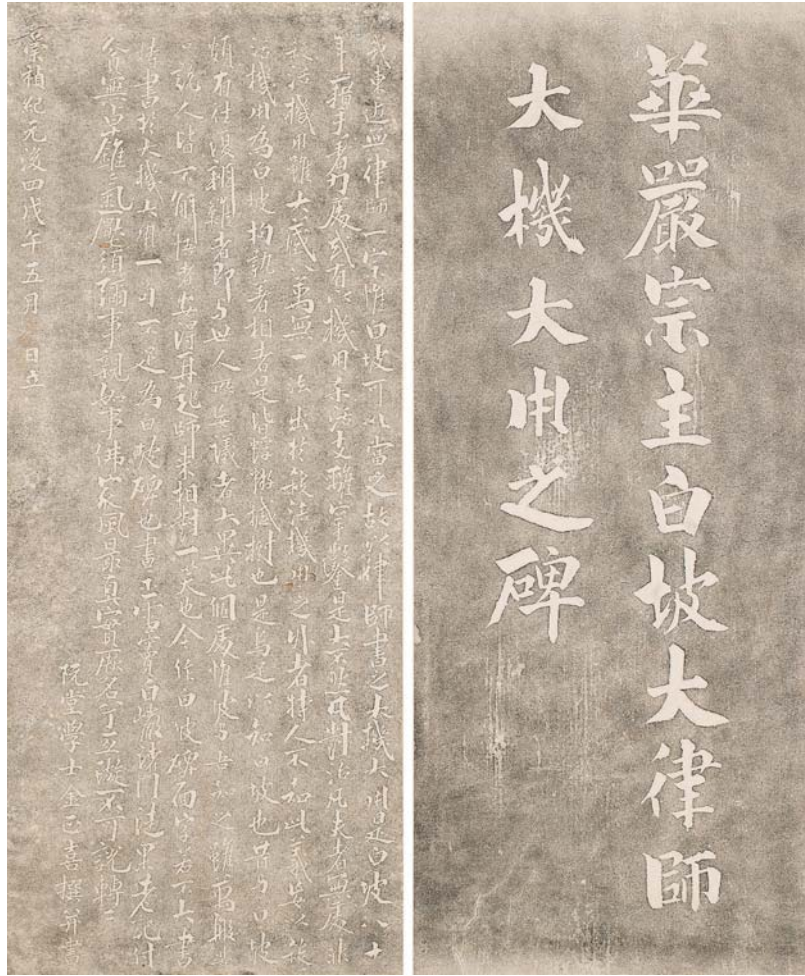 華嚴宗主白坡大律師
大機大用之碑
我東近無律師一宗惟白坡可以當之故以律師書之大機大用是白坡八十
年藉手著力處或有以機用殺活支離穿鑿是大不然凡對治凡夫者無處非
殺活機用雖大藏八萬無一法出於殺活機用之外者特人不知此義妄以殺
活機用為白坡拘執著相者是皆蜉蝣撼樹也是烏足以知白坡也昔與白坡
頗有往復辨難者即與世人所妄議者大異此個處惟坡與吾知之雖萬般苦
口說人皆不解悟者安得再起師來相對一笑也今作白坡碑面字若不大書
特書於大機大用一句不足為白坡碑也書示雪竇白巖諸門徒果老記付
貧無卓錐氣壓須彌事親如事佛家風最真實厥名兮亘璇不可說轉轉
阮堂學士金正喜撰并書
崇禎紀元後四戊午五月 日立